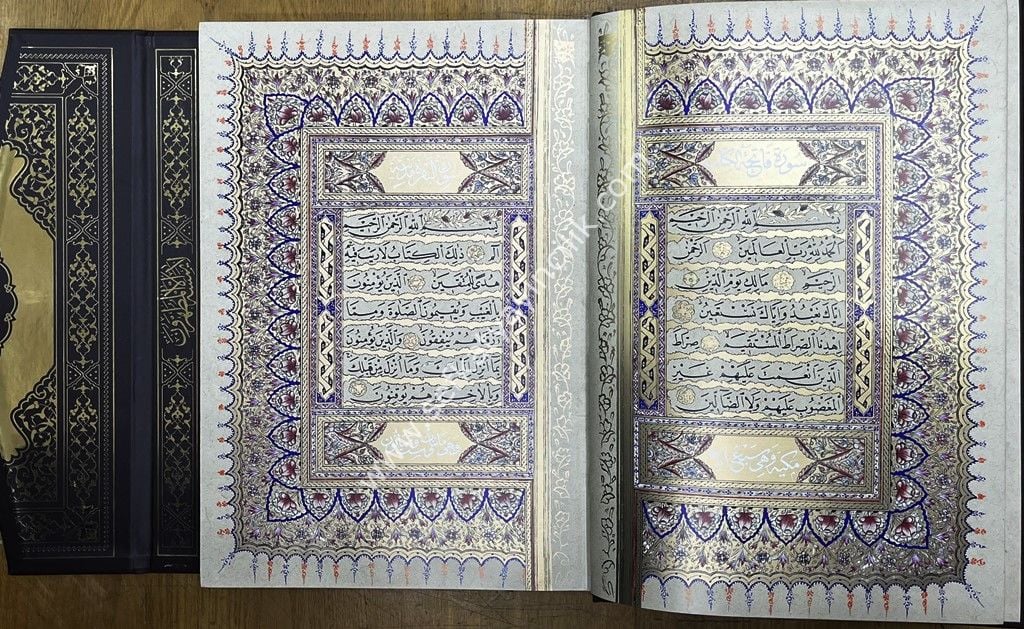 سورة فاتحة الكتاب
بِسْمِ اللهِ الرَّحْمٰنِ الرَّحِيمِ
اَلْحَمْدُ لِلّٰهِ رَبِّ الْعَالَمِينَ الرَّحْمٰنِ
الرَّحِيمِ مَالِكِ يَوْمِ الدِّينِ
اِيَّاكَ نَعْبُدُ وَاِيَّاكَ نَسْتَعِينُ
اِهْدِنَا الصِّرَاطَ الْمُسْتَقِيمَ صِرَاطَ
الَّذِينَ اَنْعَمْتَ عَلَيْهِمْ غَيْرِ
الْمَغْضُوبِ عَلَيْهِمْ وَلَا الضَّالِّينَ
مكية وهي سبع
بِسْمِ اللهِ الرَّحْمٰنِ الرَّحِيمِ
الٓمٓ ذٰلِكَ الْكِتَابُ لَا رَيْبَ فِيهِ
هُدًى لِلْمُتَّقِينَ الَّذِينَ يُؤْمِنُونَ
بِالْغَيْبِ وَيُقِيمُونَ الصَّلٰوةَ وَمِمَّا
رَزَقْنَاهُمْ يُنْفِقُونَ وَالَّذِينَ يُؤْمِنُونَ
بِمَا اُنْزِلَ اِلَيْكَ وَمَا اُنْزِلَ مِنْ قَبْلِكَ
وَبِالْاٰخِرَةِ هُمْ يُوقِنُونَ
لا يمسه الا المطهرون